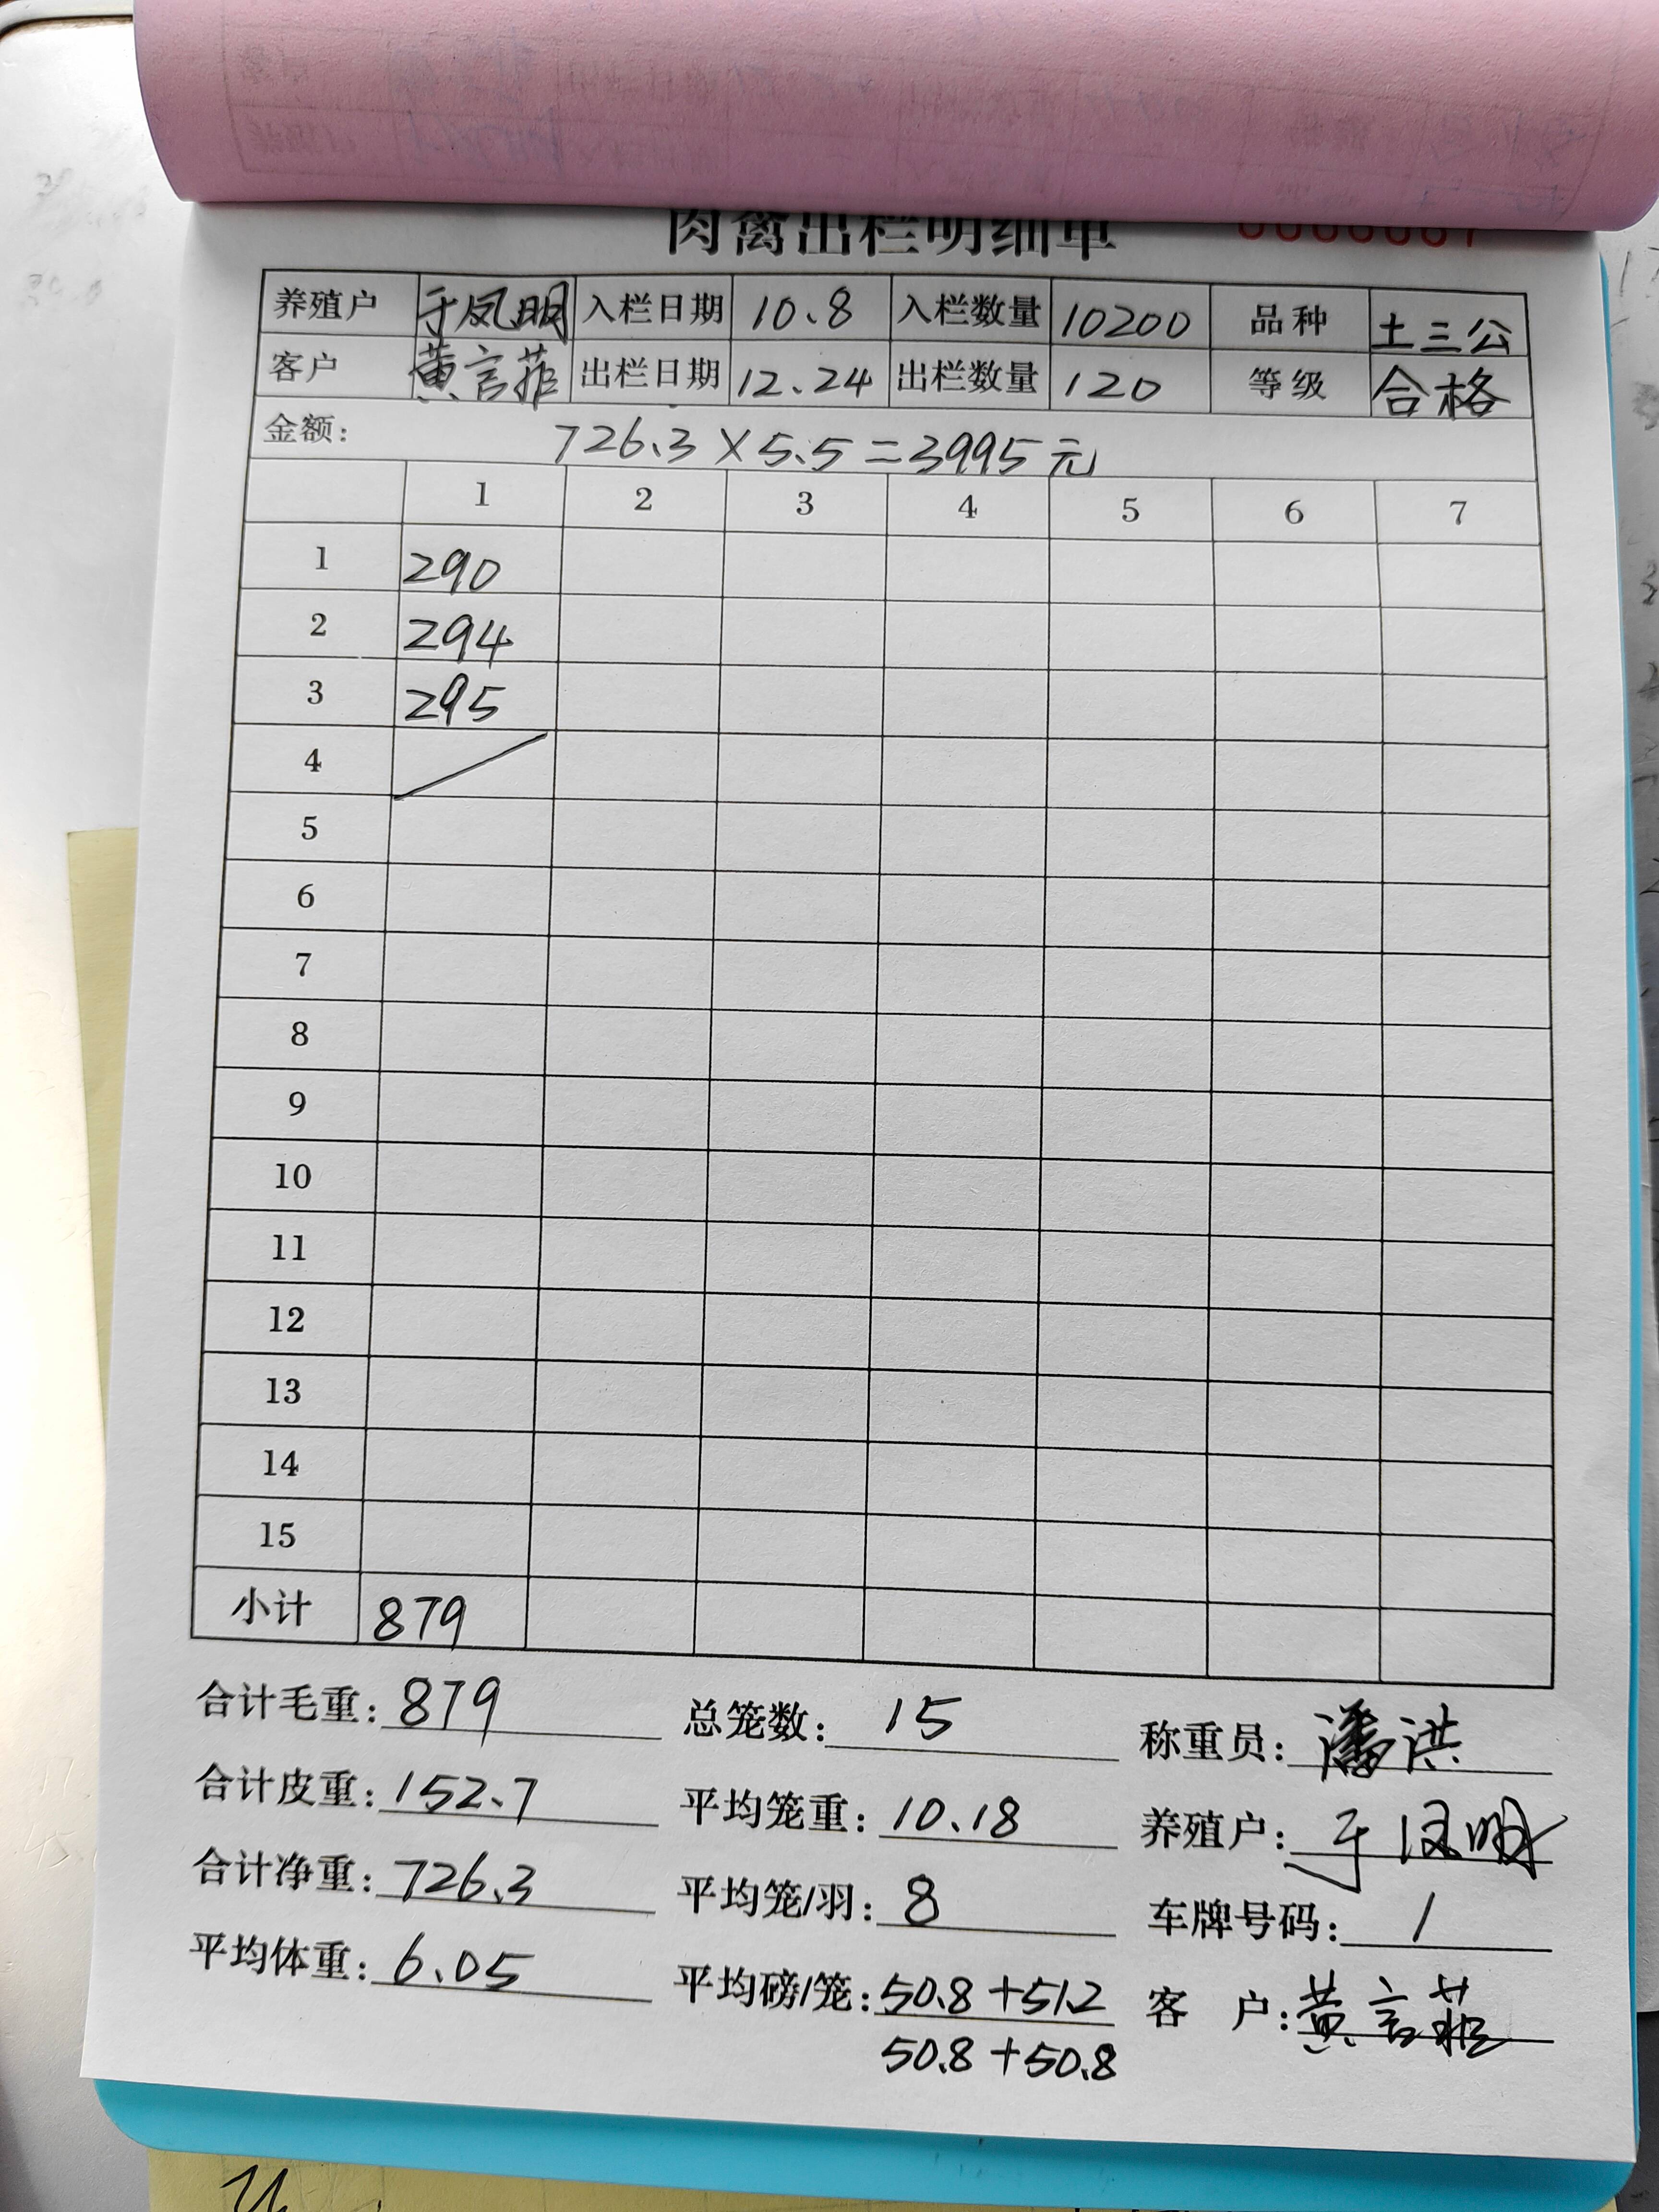 肉禽出栏明细单
养殖户 于凤明 入栏日期 10.8 入栏数量 10200 品种 土三公
客户 黄言菲 出栏日期 12.24 出栏数量 120 等级 合格
金额: 726.3×5.5=3995元
1 2 3 4 5 6 7
1 290
2 294
3 295
4
5
6
7
8
9
10
11
12
13
14
15
小计 879
合计毛重: 879 总笼数: 15 称重员: 潘洪
合计皮重: 152.7 平均笼重: 10.18 养殖户: 于凤明
合计净重: 726.3 平均笼/羽: 8 车牌号码: /
平均体重: 6.05 平均磅/笼: 50.8+51.2 客 户: 黄言菲
50.8+50.8